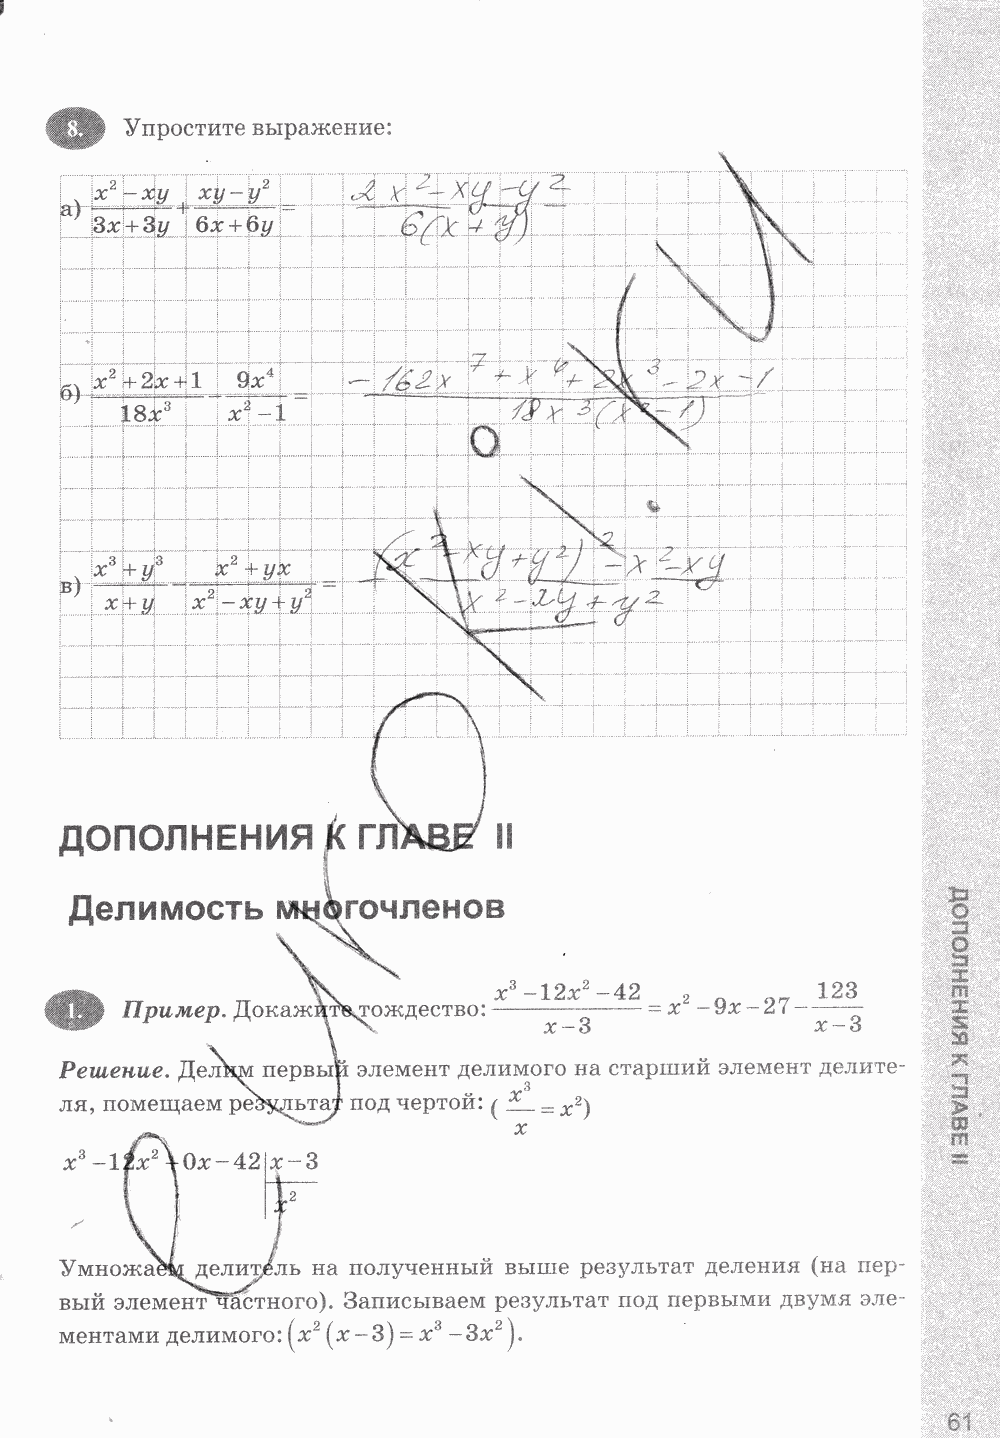 8. Упростите выражение:
а) (x² – xy)/(3x + 3y) + (xy – y²)/(6x + 6y) = (2x² – xy – y²)/(6(x + y))
б) (x² + 2x + 1)/(18x³) – (9x⁴)/(x² – 1) = (–162x⁷ + x⁴ + 2x³ – 2x – 1)/(18x³(x² – 1))
в) (x³ + y³)/(x + y) – (x² + yx)/(x² – xy + y²) = ((x² – xy + y²)² – x² – xy)/(x² – xy + y²)
ДОПОЛНЕНИЯ К ГЛАВЕ II
Делимость многочленов
1. Пример. Докажите тождество: (x³ – 12x² – 42)/(x – 3) = x² – 9x – 27 – 123/(x – 3)
Решение. Делим первый элемент делимого на старший элемент делите-
ля, помещаем результат под чертой: (x³/x = x²)
x³ – 12x² + 0x – 42 | x – 3
x²
Умножаем делитель на полученный выше результат деления (на пер-
вый элемент частного). Записываем результат под первыми двумя эле-
ментами делимого: (x²(x – 3) = x³ – 3x²).
ДОПОЛНЕНИЯ К ГЛАВЕ II
61